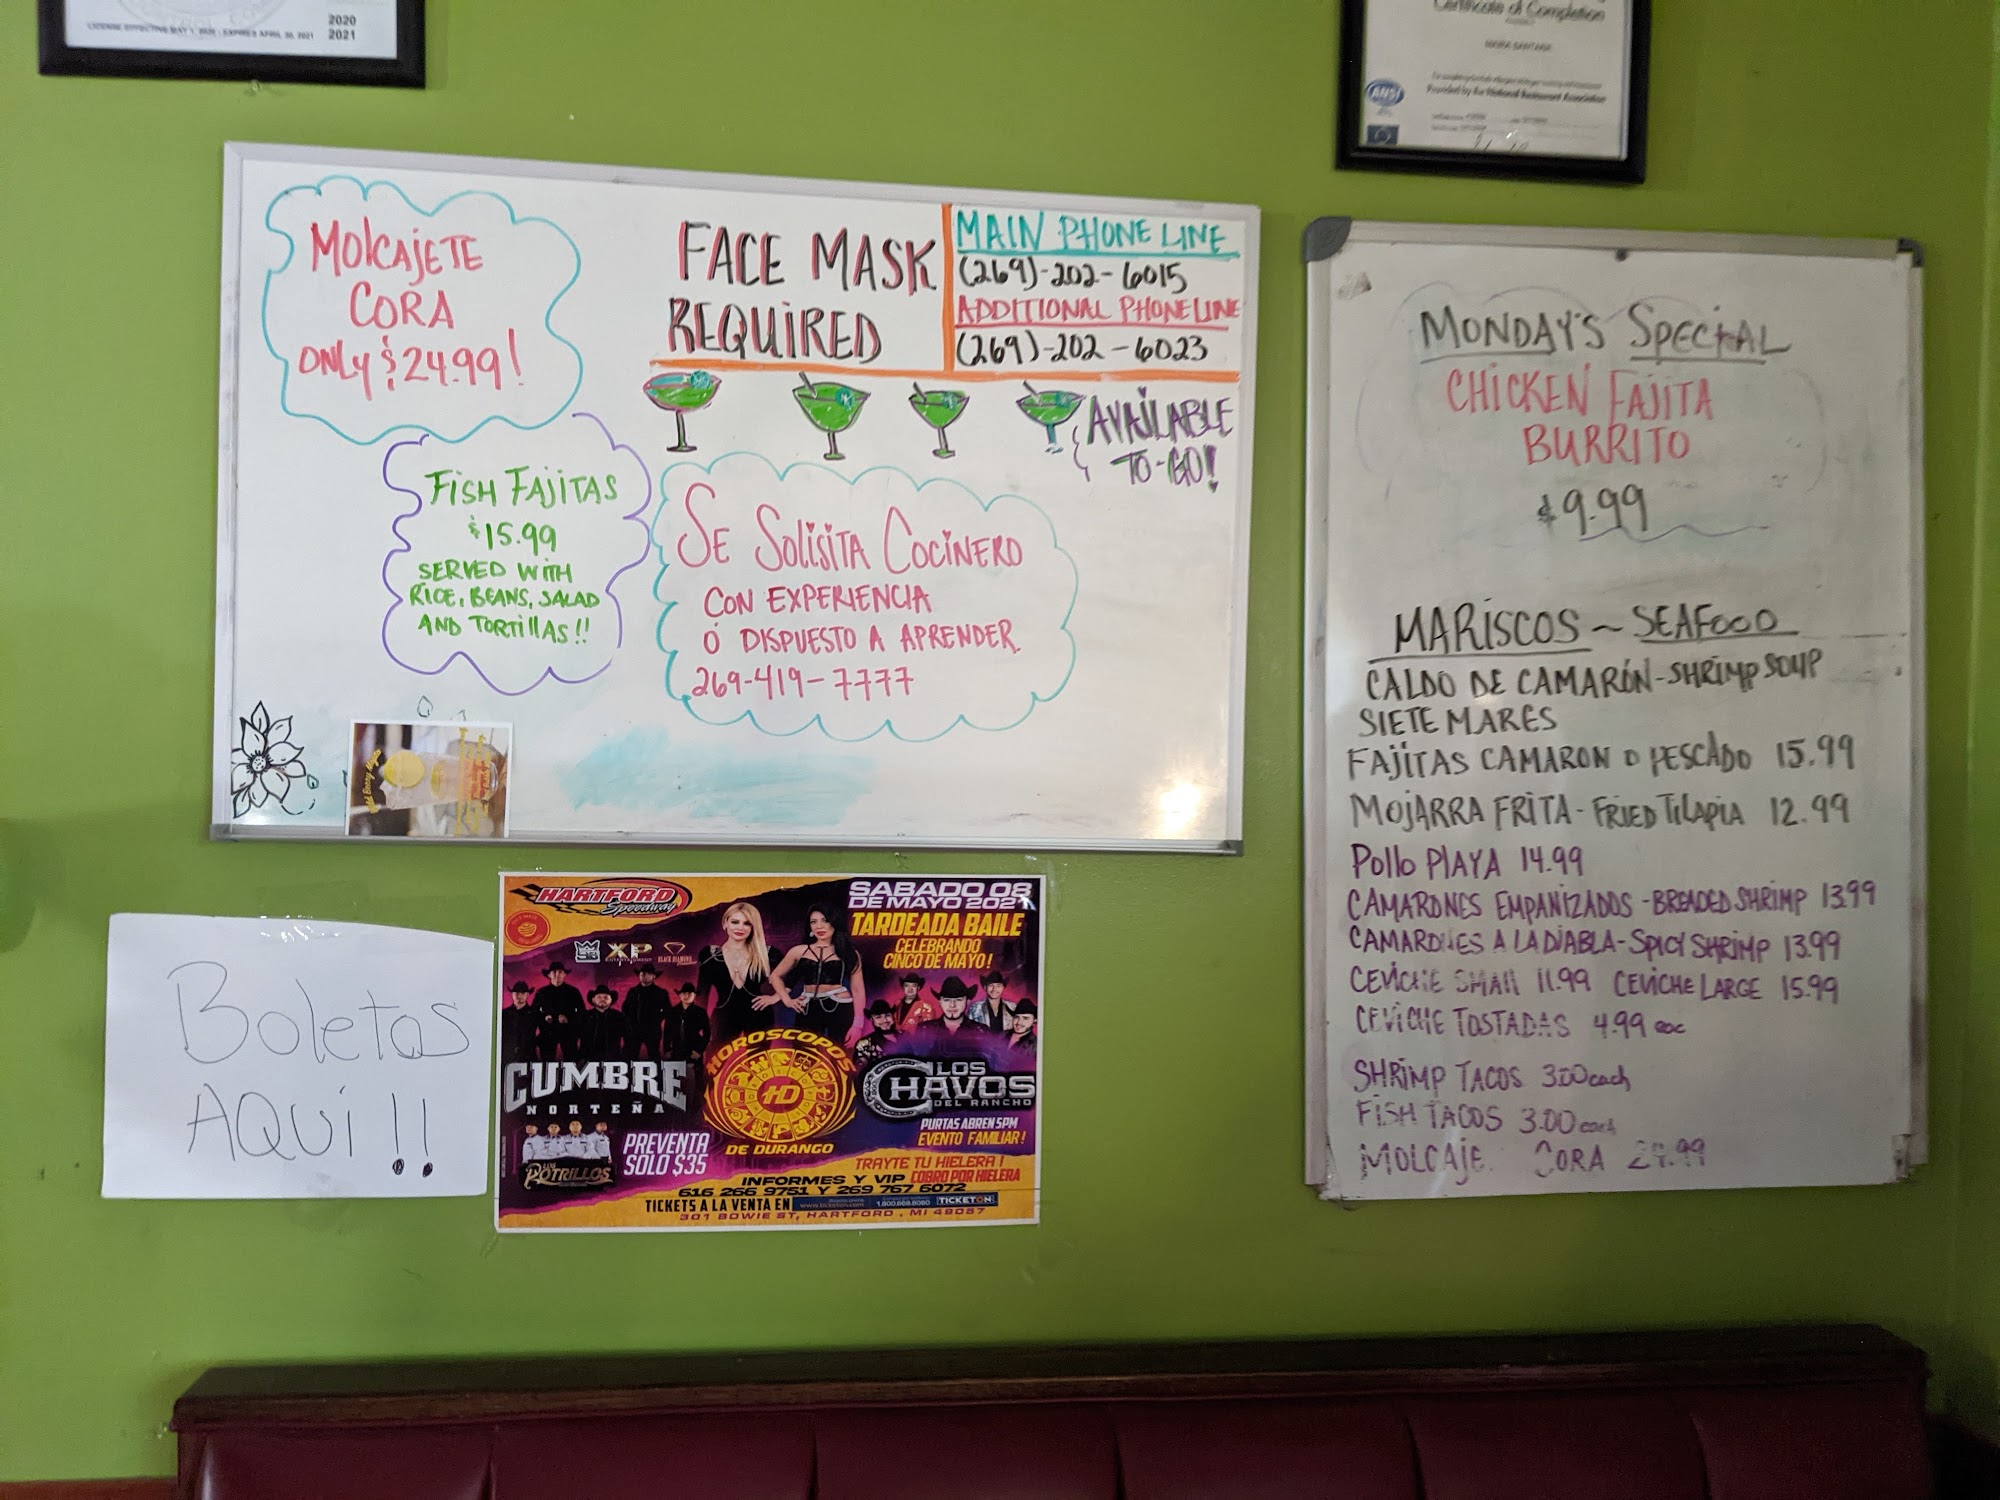 2020
LICENSE EFFECTIVE MAY 1, 2020 - EXPIRES APRIL 30, 2021 2021
Certificate of Completion
ANSI
Provided by the National Restaurant Association
MOLCAJETE
CORA
ONLY $24.99!
FACE MASK
REQUIRED
MAIN PHONE LINE
(269)-202-6015
ADDITIONAL PHONE LINE
(269)-202-6023
AVAILABLE
TO-GO!
FISH FAJITAS
$15.99
SERVED WITH
RICE, BEANS, SALAD
AND TORTILLAS!!
SE SOLISITA COCINERO
CON EXPERIENCIA
O DISPUESTO A APRENDER.
269-419-7777
MONDAY'S SPECIAL
CHICKEN FAJITA
BURRITO
$9.99
MARISCOS ~ SEAFOOD
CALDO DE CAMARÓN-SHRIMP SOUP
SIETE MARES
FAJITAS CAMARON O PESCADO 15.99
MOJARRA FRITA - FRIED TILAPIA 12.99
POLLO PLAYA 14.99
CAMARONES EMPANIZADOS - BREADED SHRIMP 13.99
CAMARONES A LA DIABLA - SPICY SHRIMP 13.99
CEVICHE SMALL 11.99 CEVICHE LARGE 15.99
CEVICHE TOSTADAS 4.99 eac
SHRIMP TACOS 3.00 each
FISH TACOS 3.00 each
MOLCAJE CORA 24.99
Boletos
AQUI!!
HARTFORD
Speedway
SABADO 08
DE MAYO 2021
TARDEADA BAILE
CELEBRANDO
CINCO DE MAYO!
XP
BLACK DIAMOND
CUMBRE
NORTEÑA
HOROSCOPOS
HD
DE DURANGO
LOS
CHAVOS
DEL RANCHO
PURTAS ABREN 5PM
EVENTO FAMILIAR!
POTRILLOS
PREVENTA
SOLO $35
TRAYTE TU HIELERA!
COBRO POR HIELERA
INFORMES Y VIP
616 266 9751 Y 269 767 6072
TICKETS A LA VENTA EN www.ticketon.com 1.800.668.8080 TICKETON
301 BOWIE ST, HARTFORD, MI 49057